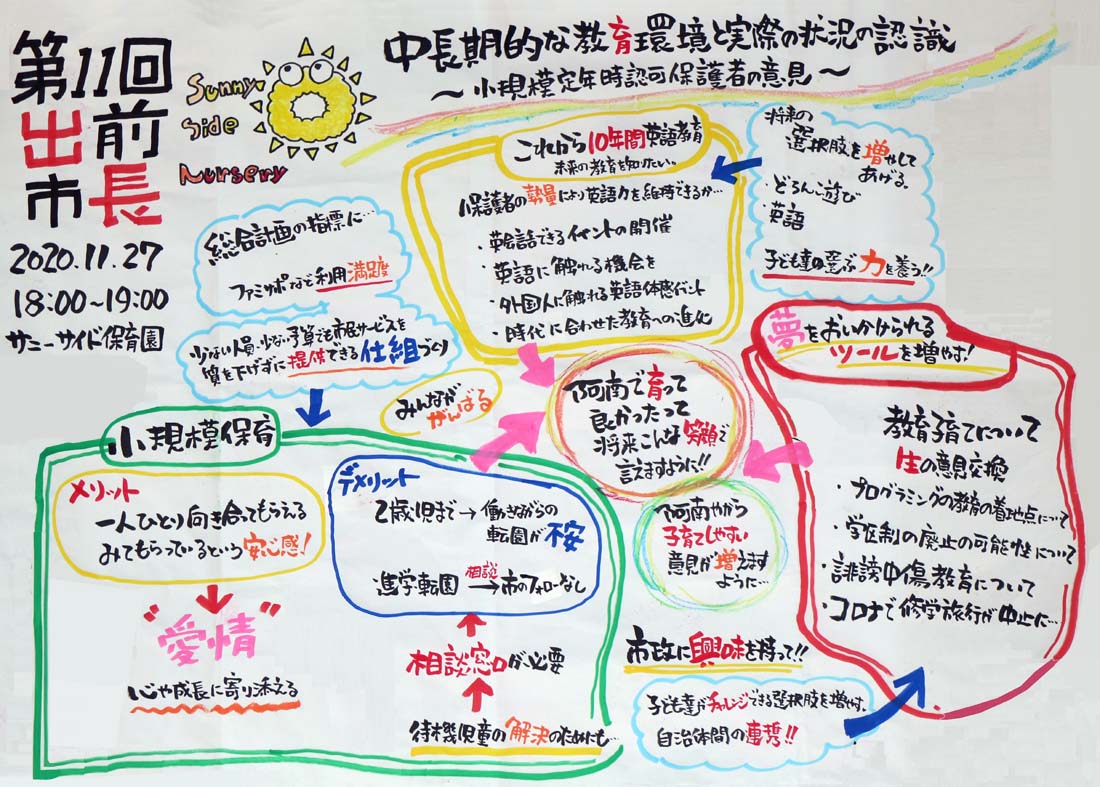 第11回
出前
市長
2020.11.27
18:00〜19:00
サニーサイド保育園
Sunny
Side
Nursery
中長期的な教育環境と実際の状況の認識
〜小規模定年時認可保護者の意見〜
これから10年間英語教育
未来の教育を知りたい。
保護者の勢量により英語力を維持できるか…
・英会話できるイベントの開催
・英語に触れる機会を
・外国人に触れる英語体感イベント
・時代に合わせた教育への進化
将来の
選択肢を増やして
あげる。
・どろんこ遊び
・英語
子ども達の選ぶ力を養う!!
総合計画の指標に…
ファミサポなど利用満足度
少ない人員・少ない予算でも市民サービスを
質を下げずに提供できる仕組づくり
みんなが
がんばる
阿南で育って
良かったって
将来こんな笑顔で
言えますように!!
夢をおいかけられる
ツールを増やす!
教育子育てについて
生の意見交換
・プログラミングの教育の着地点について
・学区制の廃止の可能性について
・誹謗中傷教育について
・コロナで修学旅行が中止に…
小規模保育
メリット
一人ひとり向き合ってもらえる
みてもらっているという安心感!
"愛情"
心や成長に寄り添える
デメリット
2歳児まで→働きながらの
転園が不安
進学転園 相談→市のフォローなし
相談窓口が必要
待機児童の解決のためにも…
阿南やから
子育てしやすい
意見が増えます
ように…
市政に興味を持って!!
子ども達がチャレンジできる選択肢を増やす。
自治体間の連携!!